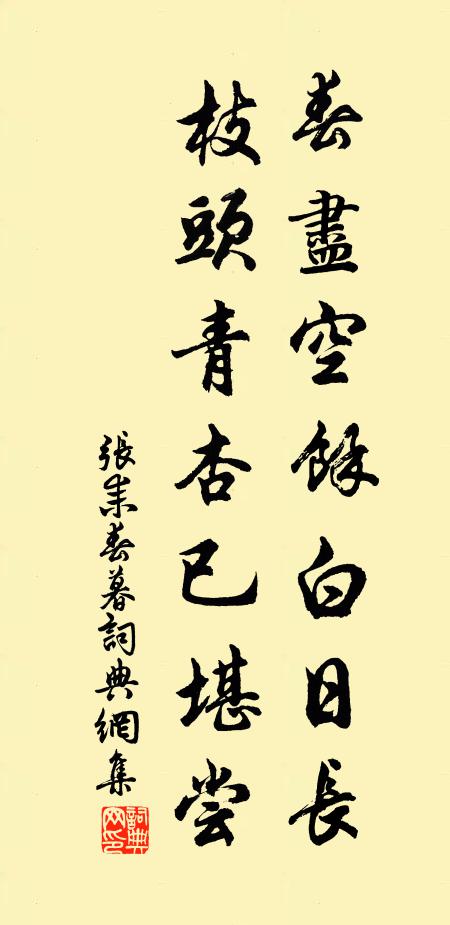 春盡空餘白日長
枝頭青杏已堪嘗
張耒春暮詞典網集
詞典网印